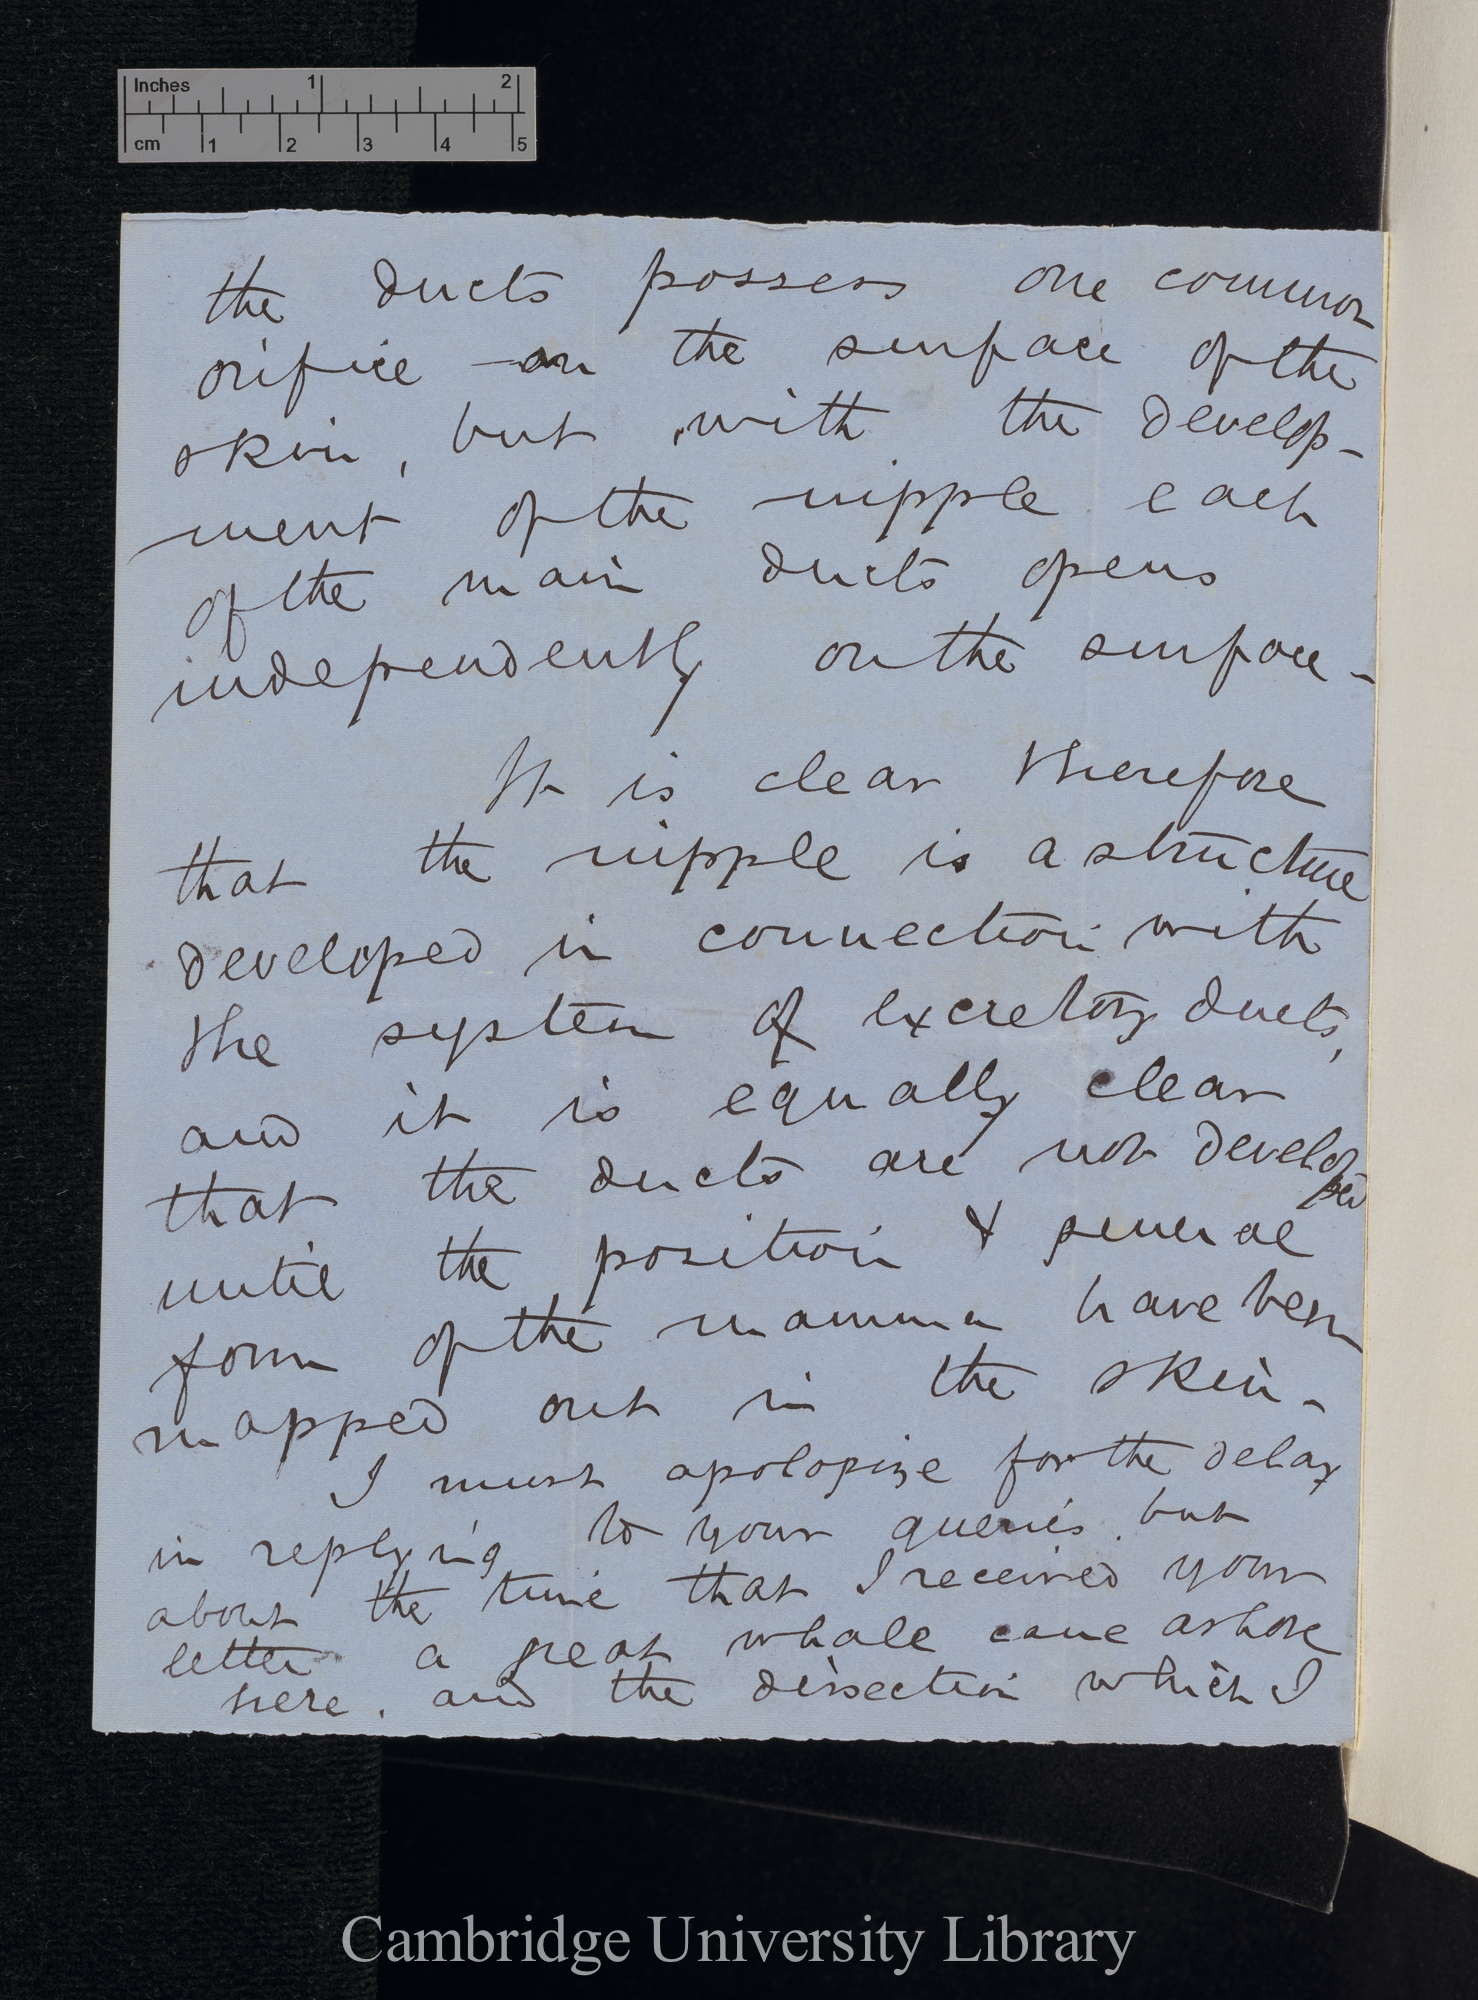 Inches 1 2
cm 1 2 3 4 5
the ducts possess one common
orifice on the surface of the
skin, but, with the develop-
ment of the nipple each
of the main ducts opens
independently on the surface -
It is clear therefore
that the nipple is a structure
developed in connection with
the system of excretory ducts,
and it is equally clear
that the ducts are not developed
until the position & general
form of the mamma have been
mapped out in the skin -
I must apologize for the delay
in replying to your queries, but
about the time that I received your
letter a great whale came ashore
here, and the dissection which I
Cambridge University Library